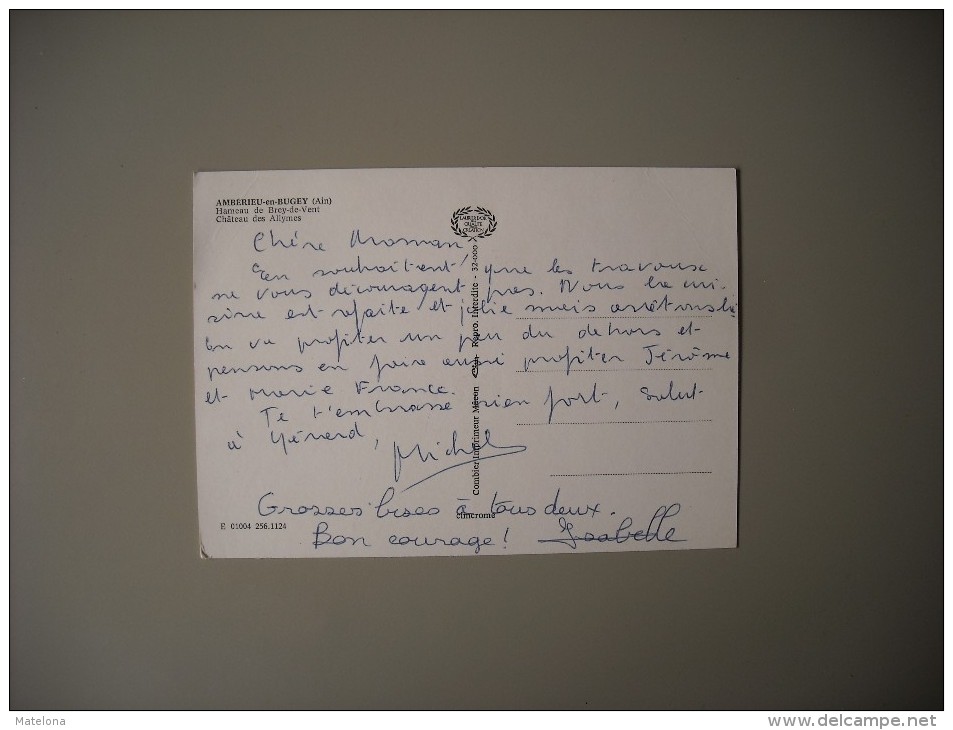 AMBÉRIEU-en-BUGEY (Ain)
Hameau de Brey-de-Vent
Château des Allymes
LAURIER D'OR
QUALITÉ
CRÉATION
Chère Maman,
En souhaitent que les travaux
ne vous découragent pas. Nous la cui-
sine est refaite et jolie mais arrêtons là
On va profiter un peu du dehors et
pensons en faire aussi profiter Jérôme
et Marie France.
Je t'embrasse bien fort, salut
à Gérard,
Michel
Grosses bises à tous deux.
Bon courage! Isabelle
Combier Imprimeur Mâcon Repro. Interdite - 32-000
cimcrome
E 01004 256.1124
Matelona
www.delcampe.net